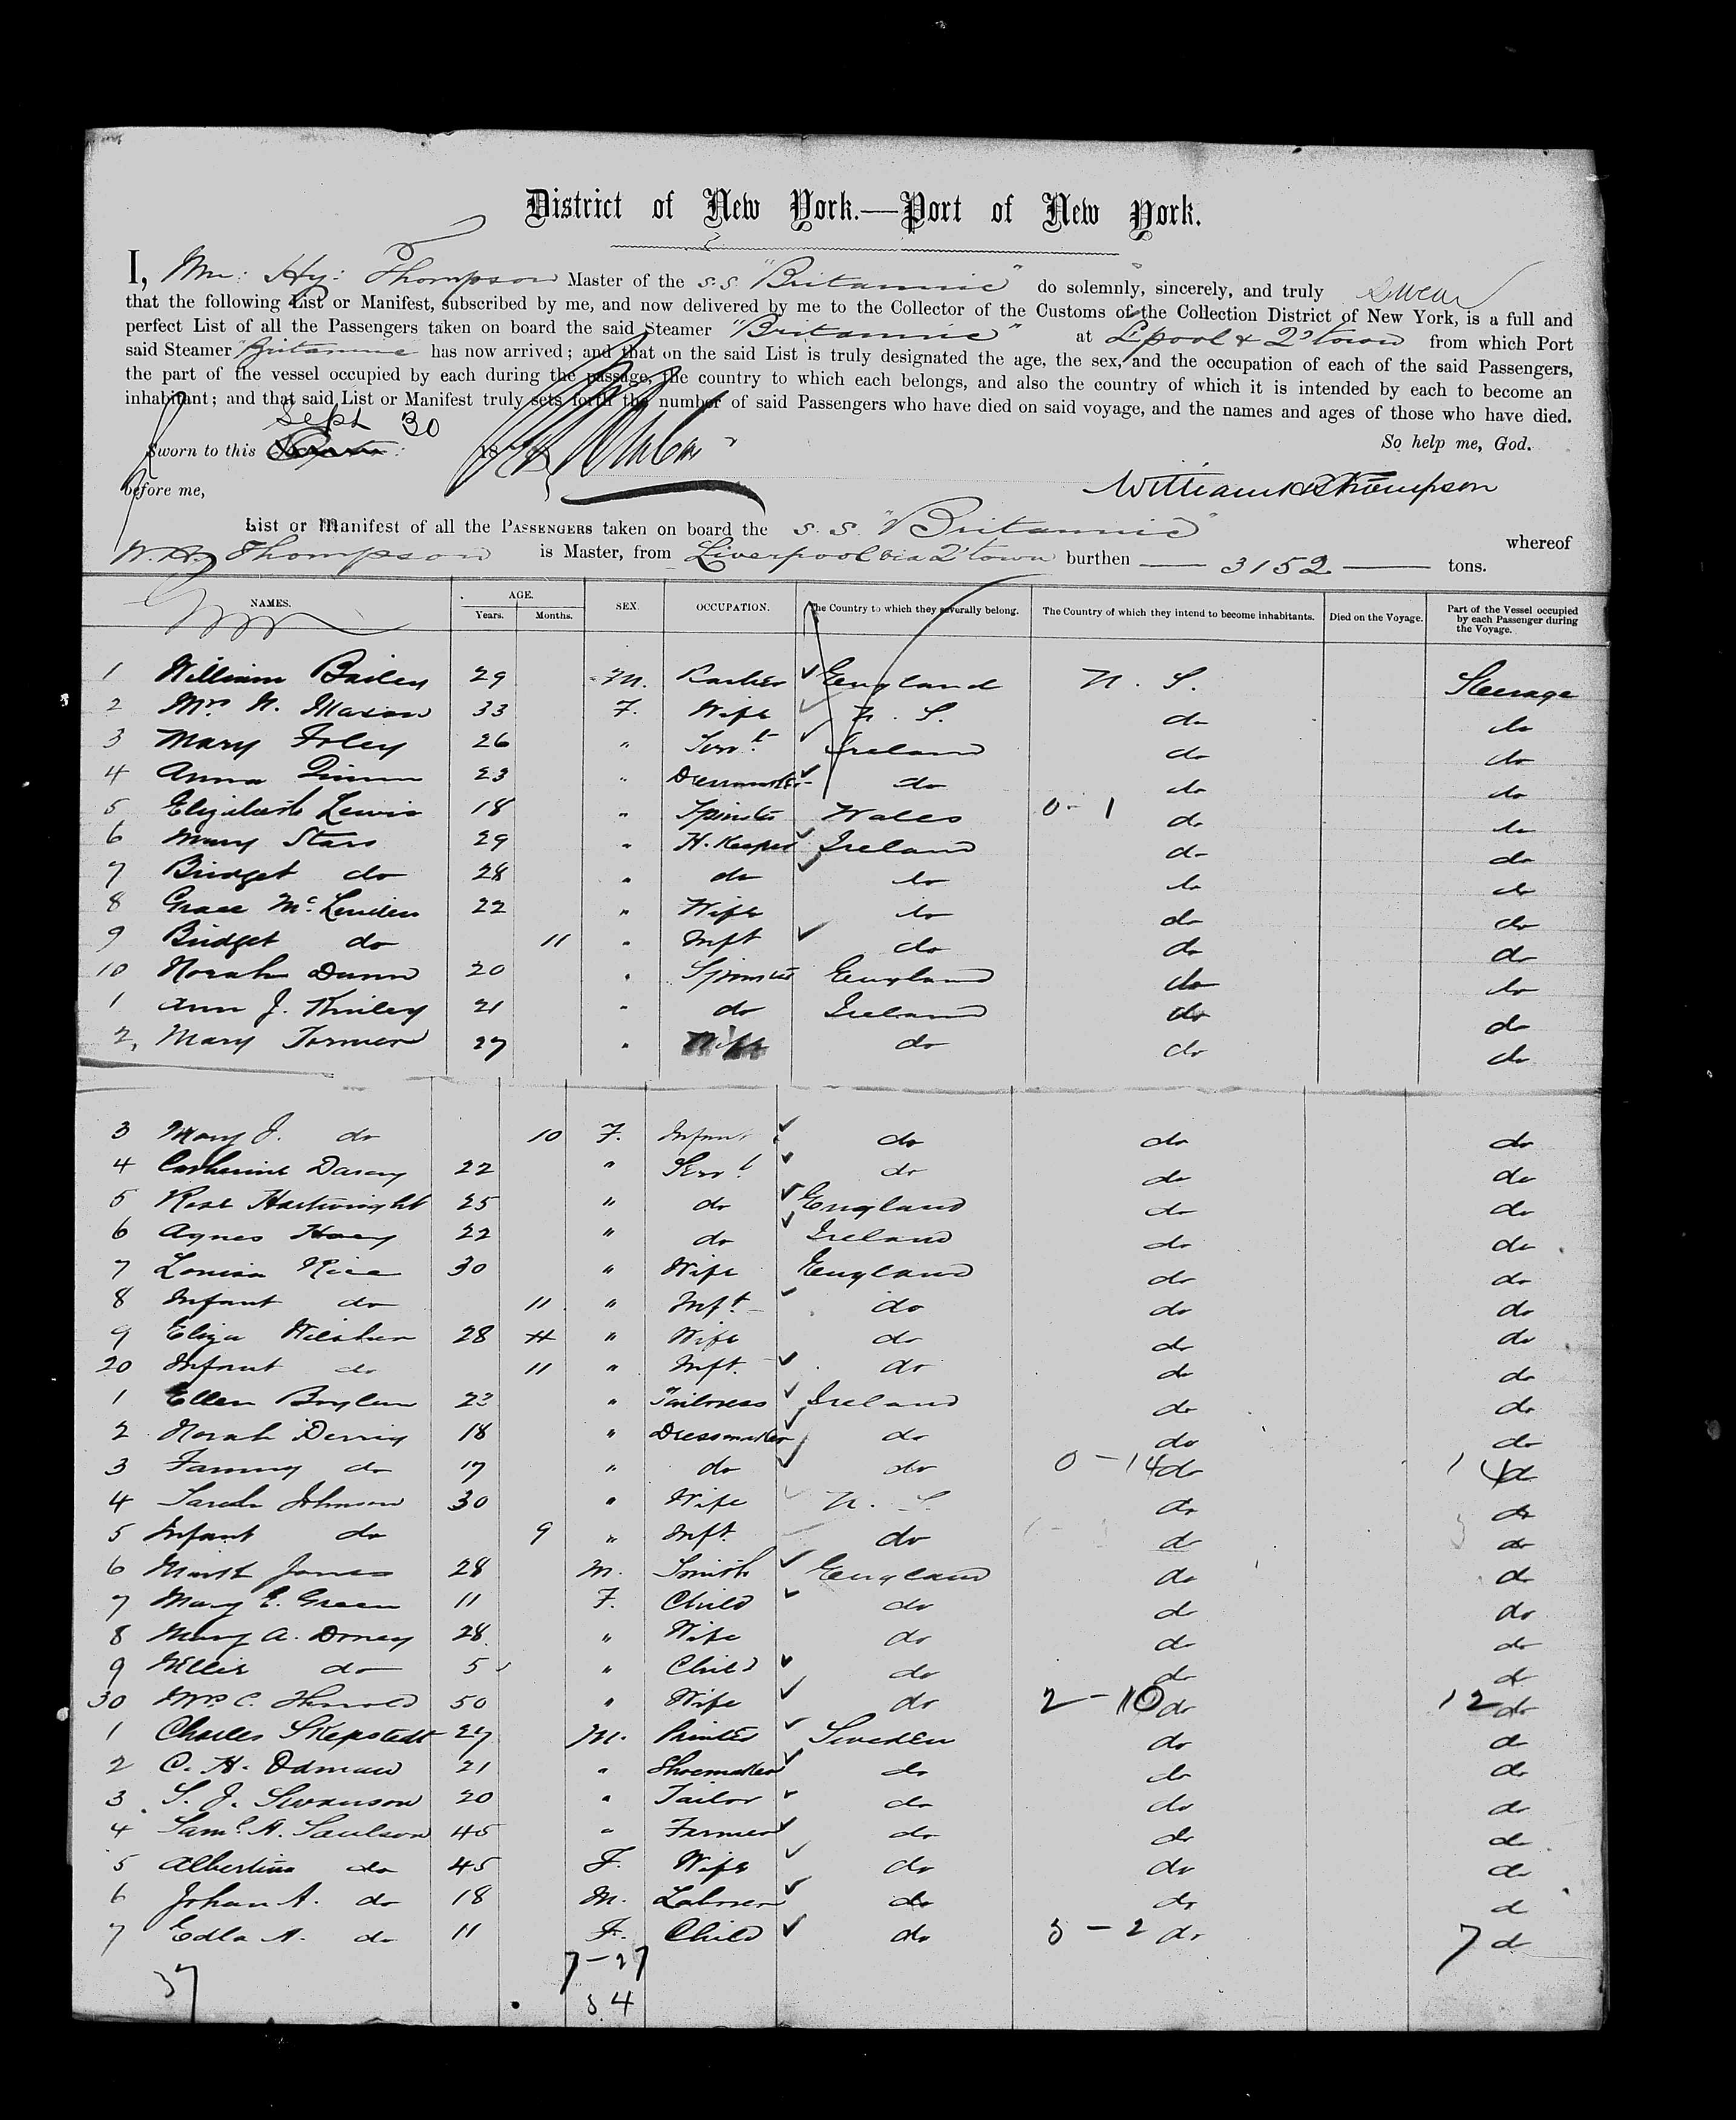 District of New York.—Port of New York.
I, Wm: Hy: Thompson Master of the s.s. "Britannic" do solemnly, sincerely, and truly swear
that the following List or Manifest, subscribed by me, and now delivered by me to the Collector of the Customs of the Collection District of New York, is a full and
perfect List of all the Passengers taken on board the said Steamer "Britannic" at L'pool & Q'town from which Port
said Steamer "Britannic has now arrived; and that on the said List is truly designated the age, the sex, and the occupation of each of the said Passengers,
the part of the vessel occupied by each during the passage, the country to which each belongs, and also the country of which it is intended by each to become an
inhabitant; and that said List or Manifest truly sets forth the number of said Passengers who have died on said voyage, and the names and ages of those who have died.
Sept 30
So help me, God.
Sworn to this 18
before me, William H Thompson
List or Manifest of all the PASSENGERS taken on board the s.s. "Britannic" whereof
W. Hy Thompson is Master, from Liverpool via Q'town burthen — 3152 — tons.
NAMES. AGE. Years. Months. SEX. OCCUPATION. The Country to which they severally belong. The Country of which they intend to become inhabitants. Died on the Voyage. Part of the Vessel occupied by each Passenger during the Voyage.
1 William Bailey 29 M. England U. S. Steerage
2 Mrs N. Mason 33 F. Wife U. S. do do
3 Mary Foley 26 " Servt Ireland do do
4 Anna Quinn 23 " Dressmaker do do do
5 Elizabeth Lewis 18 " Spinster Wales 0-1 do do
6 Mary Stars 29 " H. Keeper Ireland do do
7 Bridget do 28 " do do do do
8 Grace Mc Linden 22 " Wife do do do
9 Bridget do 11 " Inft do do do
10 Norah Dunn 20 " Spinster England do do
1 Ann J. Kinley 21 " do Ireland do do
2 Mary Tormer 27 " Wife do do do
3 Mary J. do 10 F. Infant do do do
4 Catherine Darcy 22 " Servt do do do
5 Rose Hartwright 25 " do England do do
6 Agnes Hoey 22 " do Ireland do do
7 Louisa Rice 30 " Wife England do do
8 Infant do 11 " Inft do do do
9 Eliza 28 " Wife do do do
20 Infant do 11 " Inft. do do do
1 Ellen Boylen 23 " Tailoress Ireland do do
2 Norah Derrig 18 " Dressmaker do do do
3 Fanny do 17 " do do 0-14 do 14 do
4 Sarah Johnson 30 " Wife U. S. do do
5 Infant do 9 " Inft. do do do
6 James 28 M. Smith England do do
7 Mary E. Green 11 F. Child do do do
8 Mary A. Doney 28 " Wife do do do
9 Nellie do 5 " Child do do do
30 Mrs C. 50 " Wife do 2-10 do 12 do
1 Charles Skepstedt 27 M. Printer Sweden do do
2 C. H. Odman 21 " Shoemaker do do do
3 S. J. Swanson 20 " Tailor do do do
4 Saml A. Paulson 45 " Farmer do do do
5 Albertina do 45 F. Wife do do do
6 Johan A. do 18 M. Laborer do do do
7 Edla A. do 11 F. Child do 5-2 do 7 do
37 7-27
34